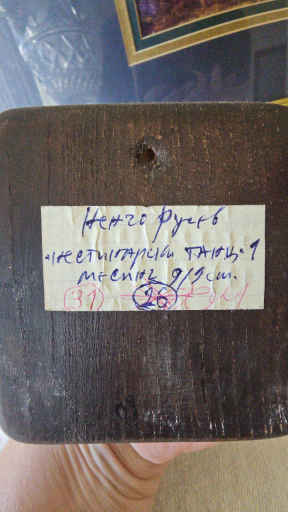 Ненчо Русев
"Нестинарски танц" 1
месинг 9/9 cm.
31 26